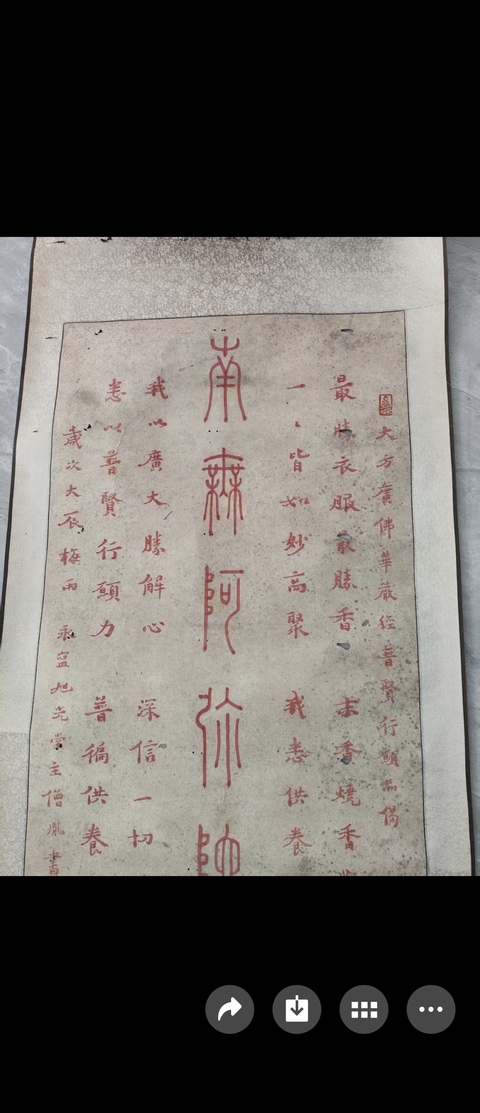 大方廣佛華嚴經普賢行願品偈
最勝衣服最勝香 末香燒香
一一皆如妙高聚 我悉供養
南無阿弥陀
我以廣大勝解心 深信一切
悉以普賢行願力 普徧供養
歲次大辰梅雨 旭光堂主僧胤書